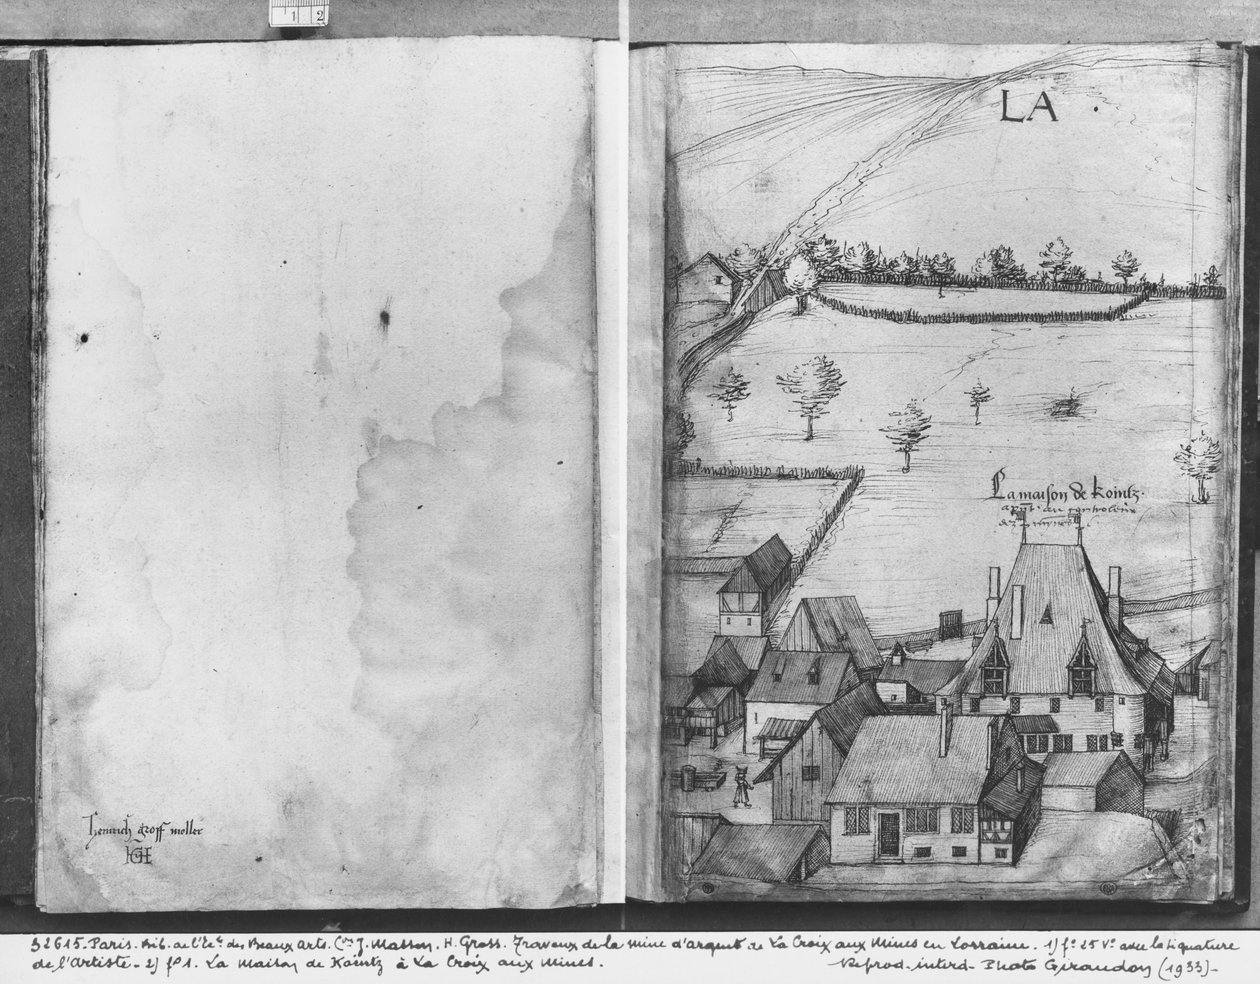 1 2
Heinrich Groff moller
HG
LA
La maison de Kointz.
32615. Paris. Bib. de l'Ec. des Beaux Arts. Con J. Masson. H. Gross. Travaux de la mine d'argent de La Croix aux Mines en Lorraine. 1) fo 25 Vo avec la signature
de l'Artiste - 2) fo 1. La Maison de Kointz à La Croix aux Mines.
Reprod. interd. Photo Giraudon (1933)-